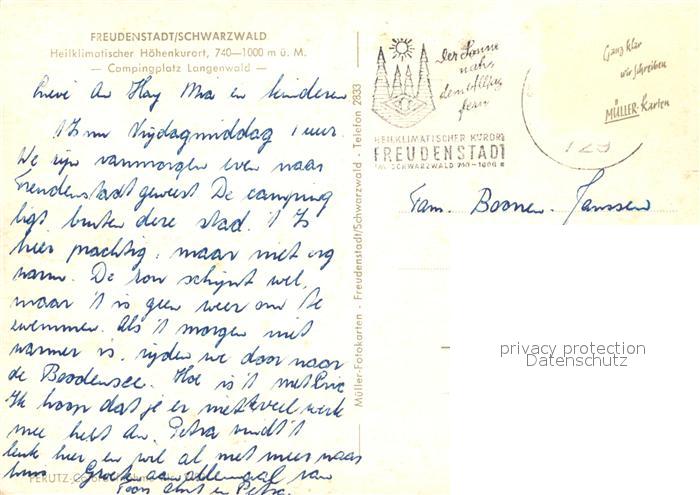 FREUDENSTADT/SCHWARZWALD
Heilklimatischer Höhenkurort, 740—1000 m ü. M.
— Campingplatz Langenwald —
Lieve An Hay Mia en kinderen
't Is nu Vrijdagmiddag 1 uur.
We zijn vanmorgen even naar
Freudenstadt geweest De camping
ligt buiten deze stad. 't Is
hier prachtig, maar niet erg
warm. De zon schijnt wel,
maar 't is geen weer om te
zwemmen. Als 't morgen niet
warmer is, rijden we door naar
de Boodensee. Hoe is 't met
Ik hoop dat je er niet veel werk
mee hebt An. Petra vindt 't
leuk hier en wil al niet meer naar
huis. Groetjes allemaal van
Toos en Petra.
Müller-Fotokarten - Freudenstadt/Schwarzwald - Telefon 2833
Der Sonne
nahe
dem Alltag
fern
HEILKLIMATISCHER KURORT
FREUDENSTADT
IM SCHWARZWALD 740-1000 m
Ganz klar
wir schreiben
MÜLLER-Karten
Fam. Boonen-Janssen
privacy protection
Datenschutz